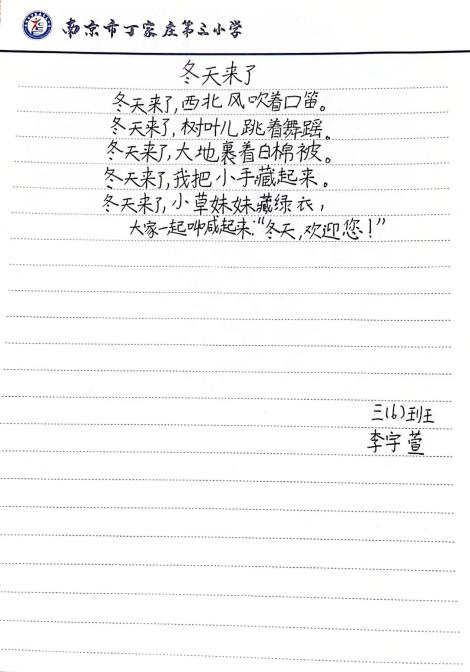 南京市丁家庄第三小学
冬天来了
冬天来了,西北风吹着口笛。
冬天来了,树叶儿跳着舞蹈。
冬天来了,大地裹着白棉被。
冬天来了,我把小手藏起来。
冬天来了,小草妹妹藏绿衣,
大家一起叫喊起来:“冬天,欢迎您!”
三(6)班
李宇萱